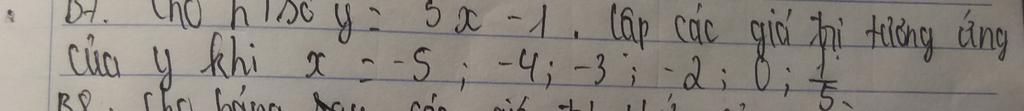 B7. Cho h/số y = 5x - 1. Lập các giá trị tương ứng
của y khi x = -5; -4; -3; -2; 0; 1/5.
B8. Cho bảng các giá